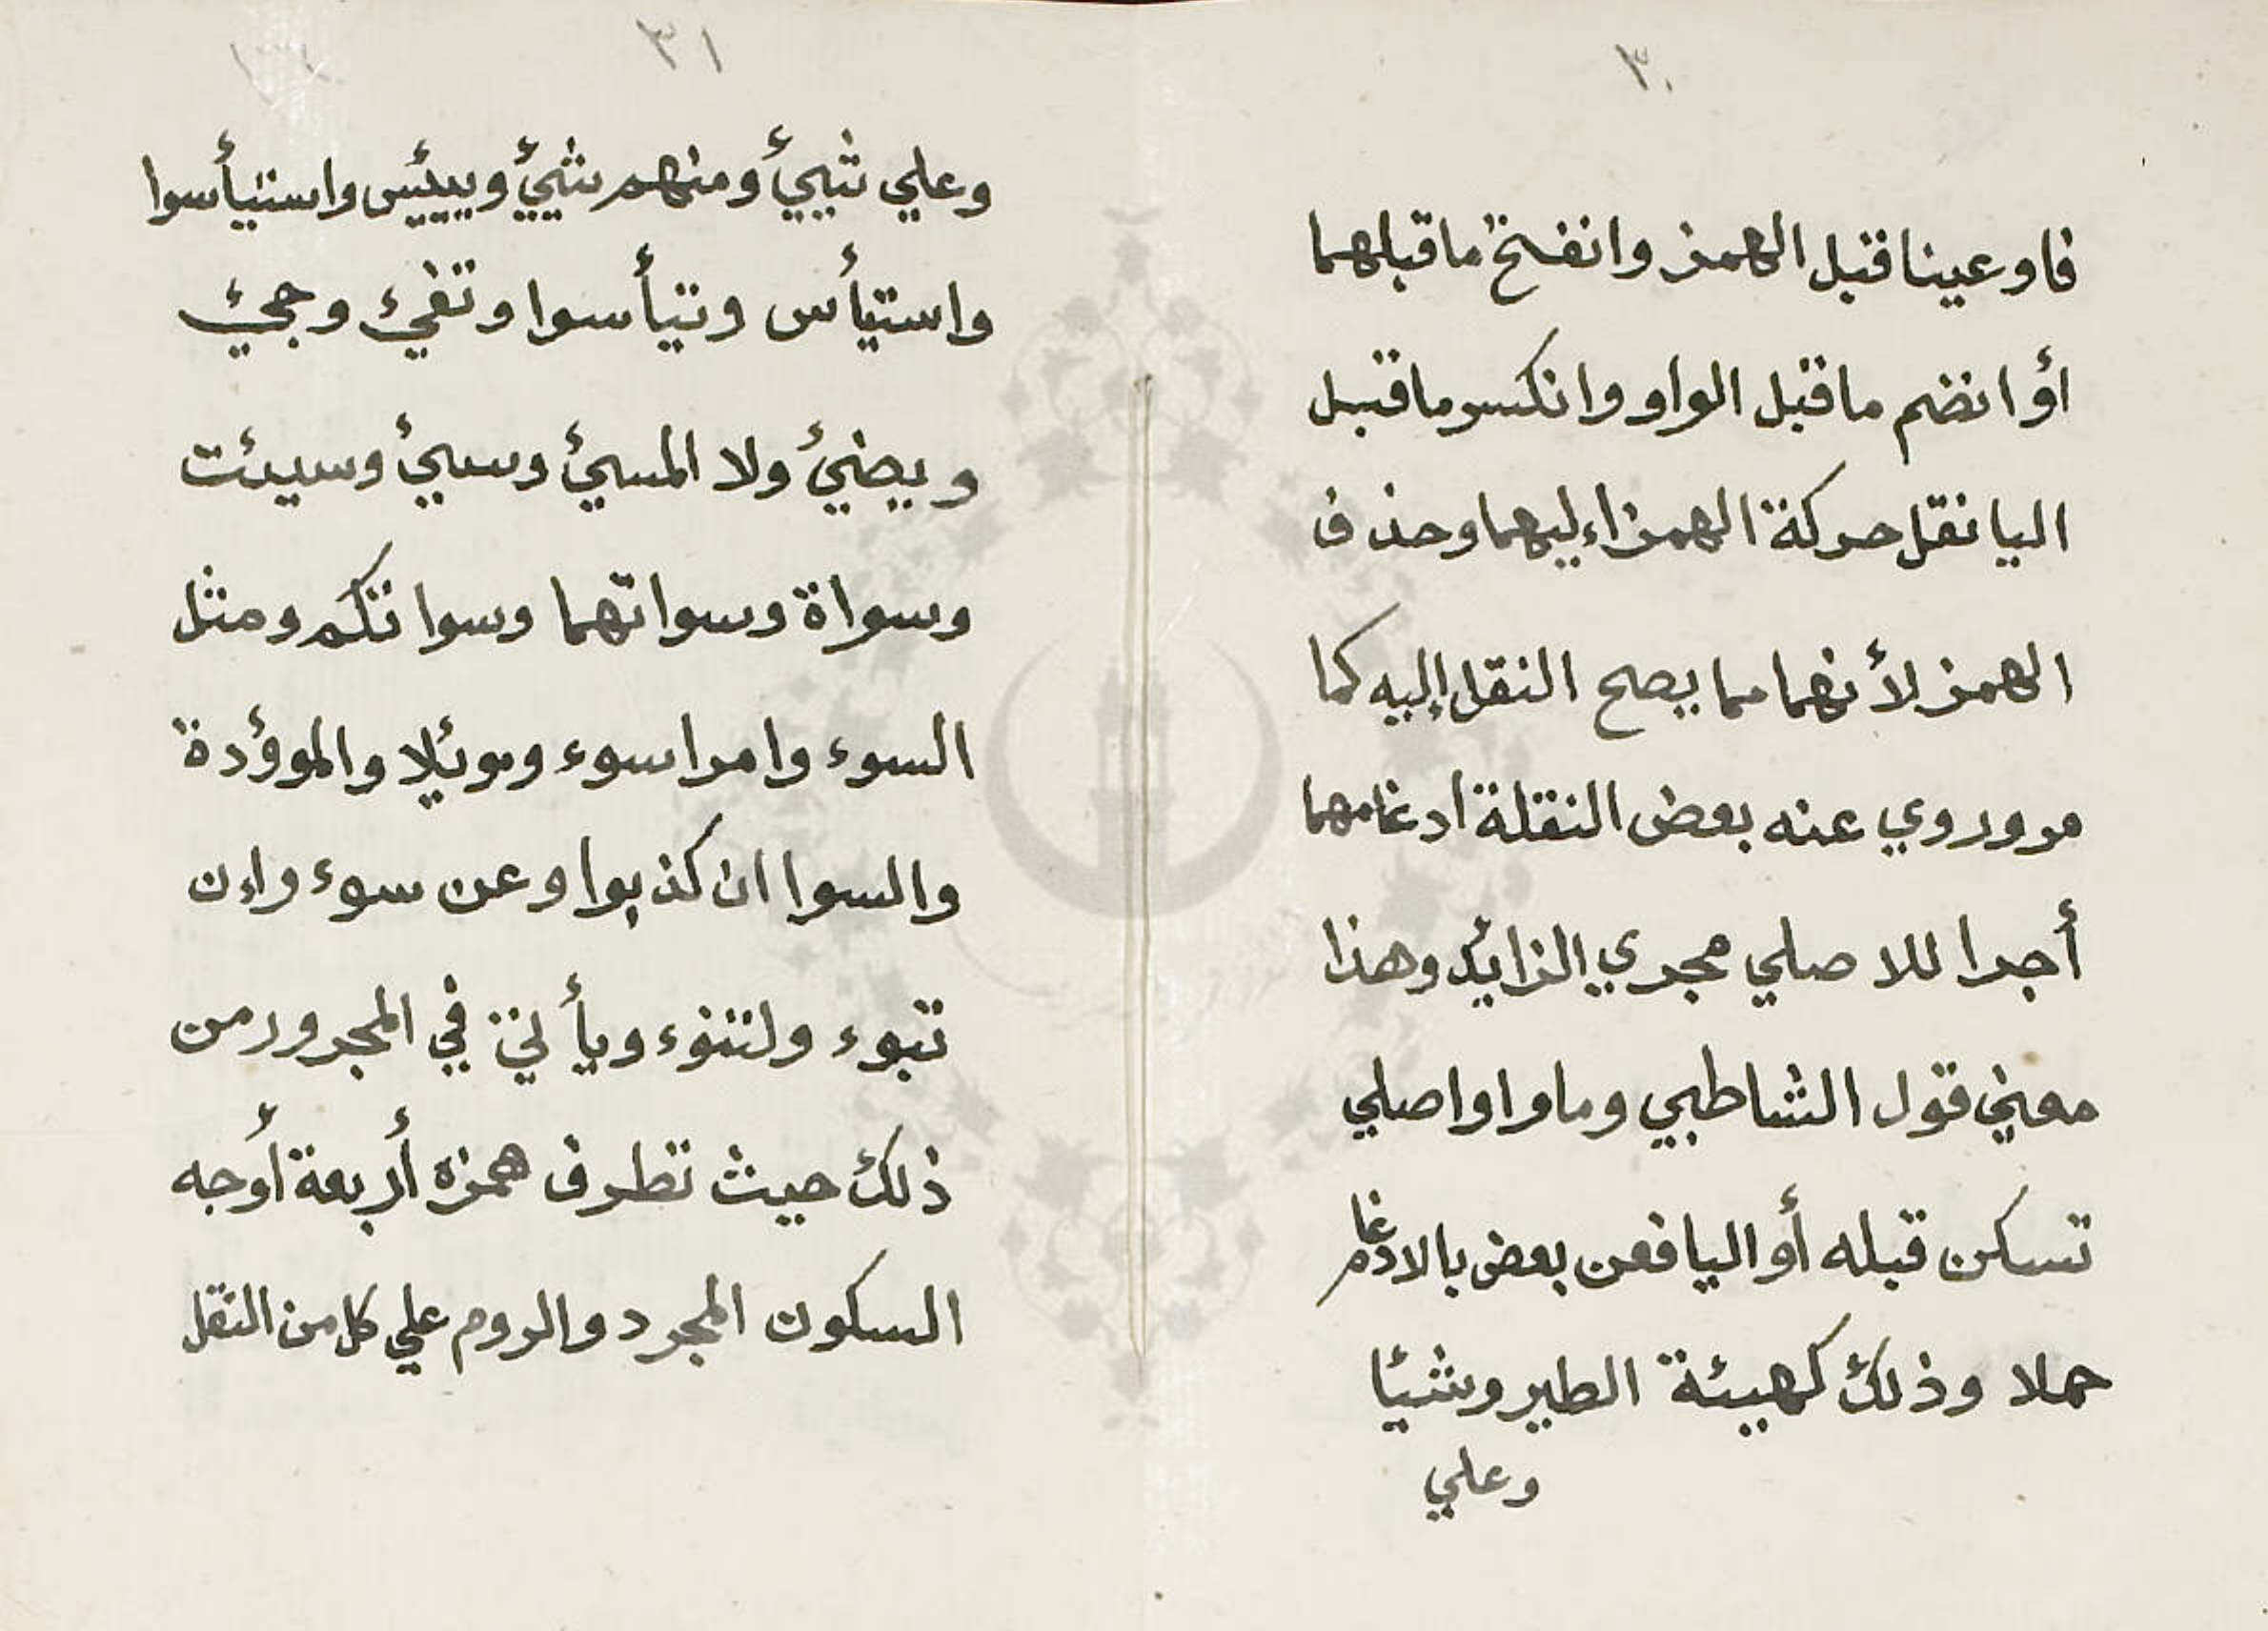 ٣٠
فا وعينا قبل الهمز وانفتح ما قبلهما
أوانضم ما قبل الواو وانكسر ما قبل
اليا نقل حركة الهمز اءليهما وحذف
الهمز لأنهما مما يصح النقل إليه كما
مر وروي عنه بعض النقلة ادغامهما
أجرا للاصلي مجري الزايد وهذا
معني قول الشاطبي وما واو اصلي
تسكن قبله أو اليا فعن بعض بالادغام
حملا وذلك كهيئة الطير وشيئا
وعلي
٣١
وعلي شيئ ومنهم شيئ وييئس واستيأسوا
واستيأس وتيأسوا وتفيئ وجيئ
ويضيئ ولا المسيئ وسيئ وسيئت
وسواة وسواتهما وسواتكم ومثل
السوء وامرا سوء وموئلا والموؤدة
والسوا ان كذبوا وعن سوء واءن
تبوء ولتنوء ويأتي في المجرور من
ذلك حيث تطرف همزه أربعة أوجه
السكون المجرد والروم علي كل من النقل